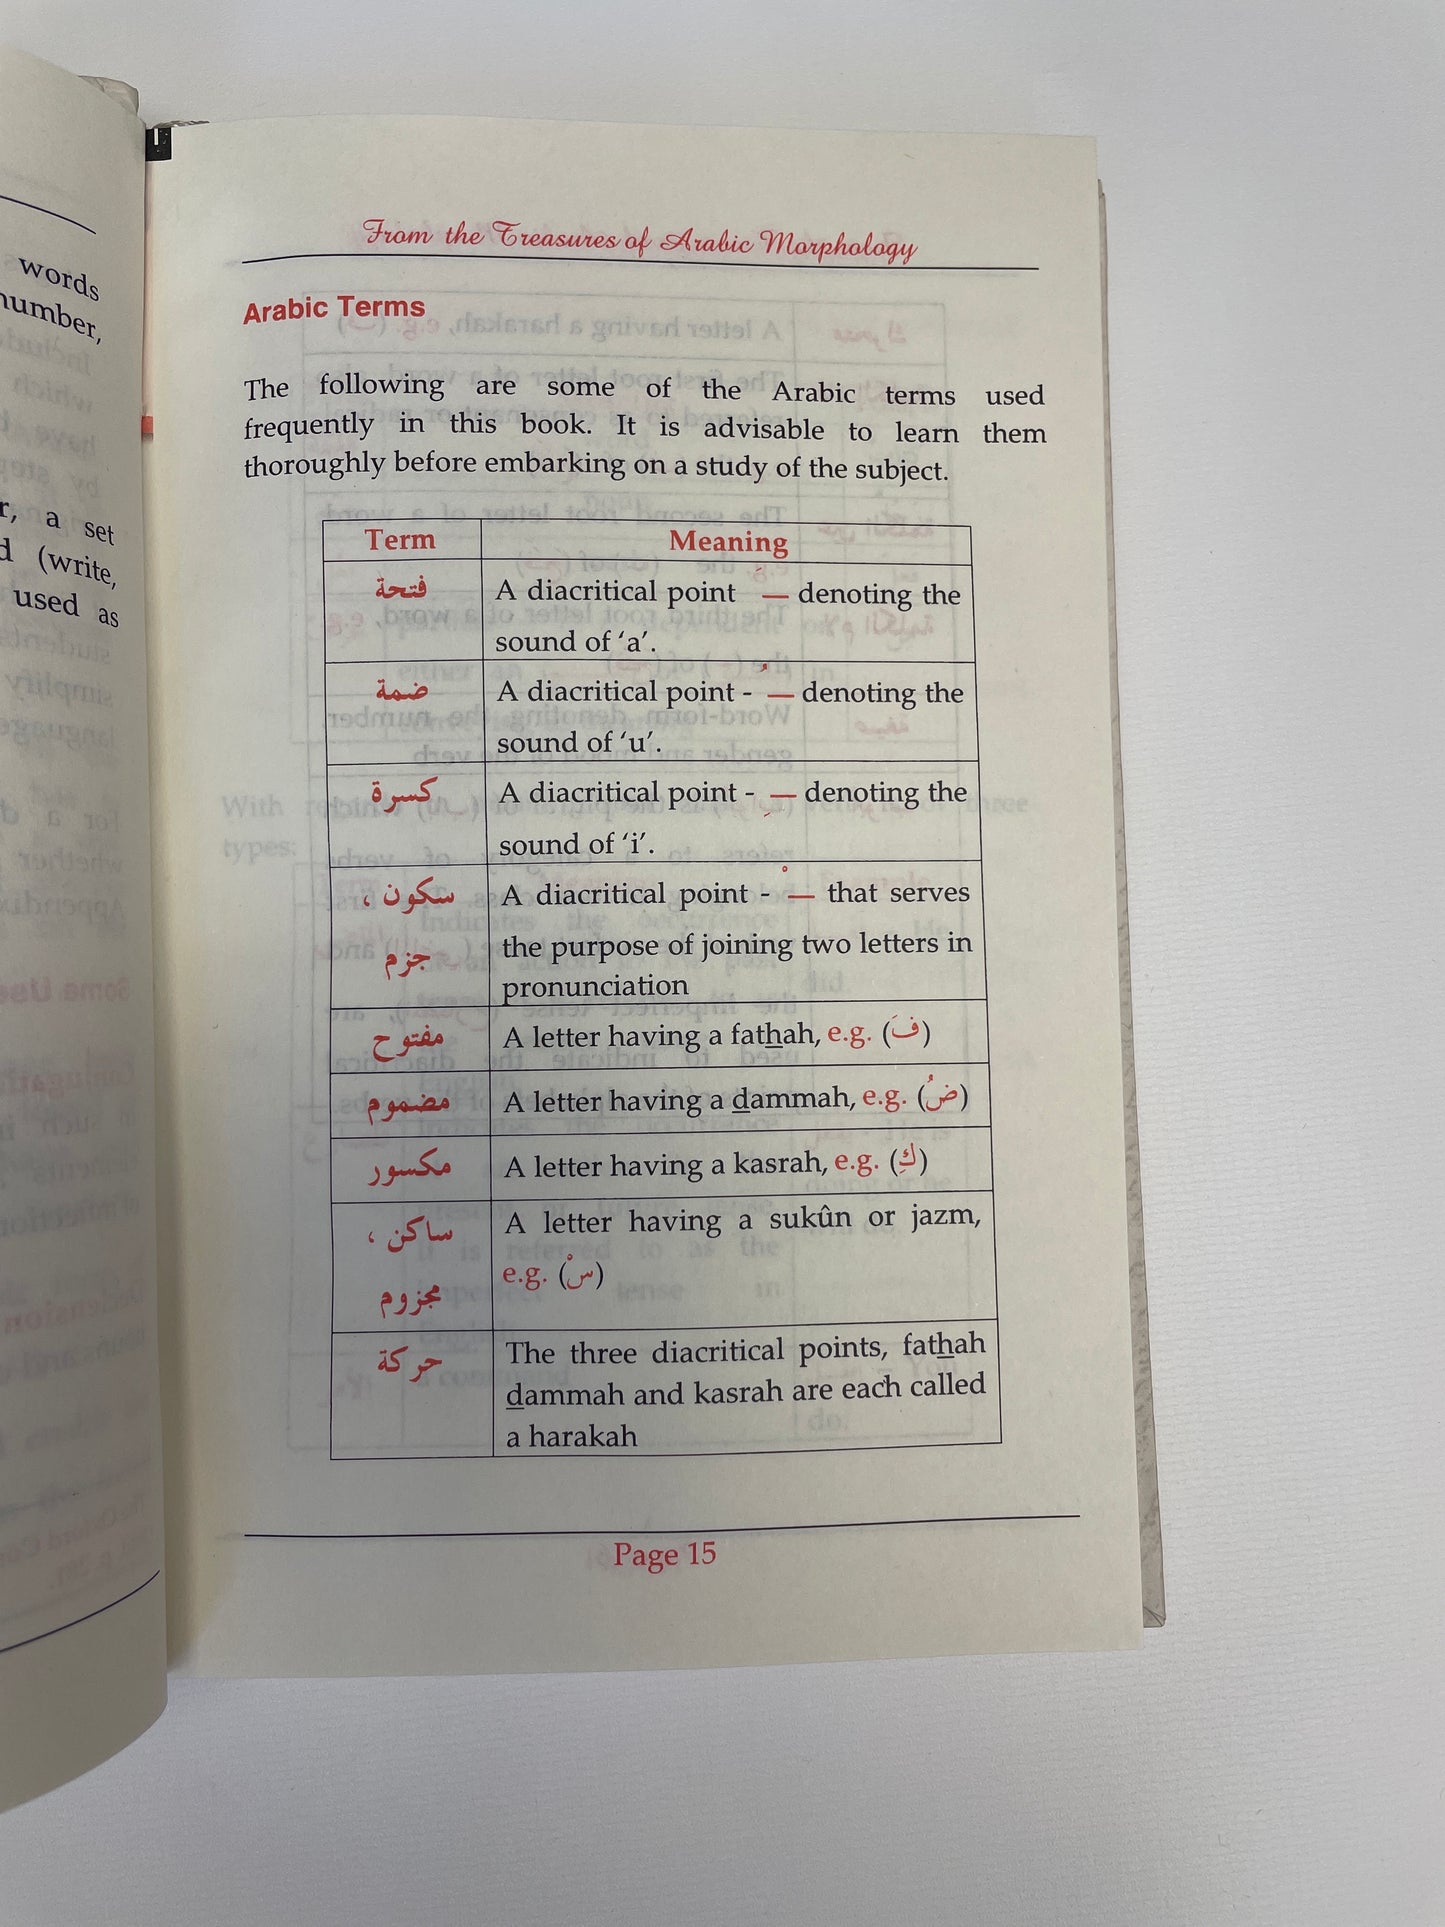 words
number,
r, a set
d (write,
used as
From the Treasures of Arabic Morphology
Arabic Terms
The following are some of the Arabic terms used
frequently in this book. It is advisable to learn them
thoroughly before embarking on a study of the subject.
Term Meaning
فتحة A diacritical point —َ denoting the
sound of ‘a’.
ضمة A diacritical point - —ُ denoting the
sound of ‘u’.
كسرة A diacritical point - —ِ denoting the
sound of ‘i’.
سكون ، A diacritical point - —ْ that serves
جزم the purpose of joining two letters in
pronunciation
مفتوح A letter having a fathah, e.g. (فَ)
مضموم A letter having a dammah, e.g. (ضُ)
مكسور A letter having a kasrah, e.g. (كِ)
ساكن ، A letter having a sukûn or jazm,
مجزوم e.g. (سْ)
حركة The three diacritical points, fathah
dammah and kasrah are each called
a harakah
Page 15